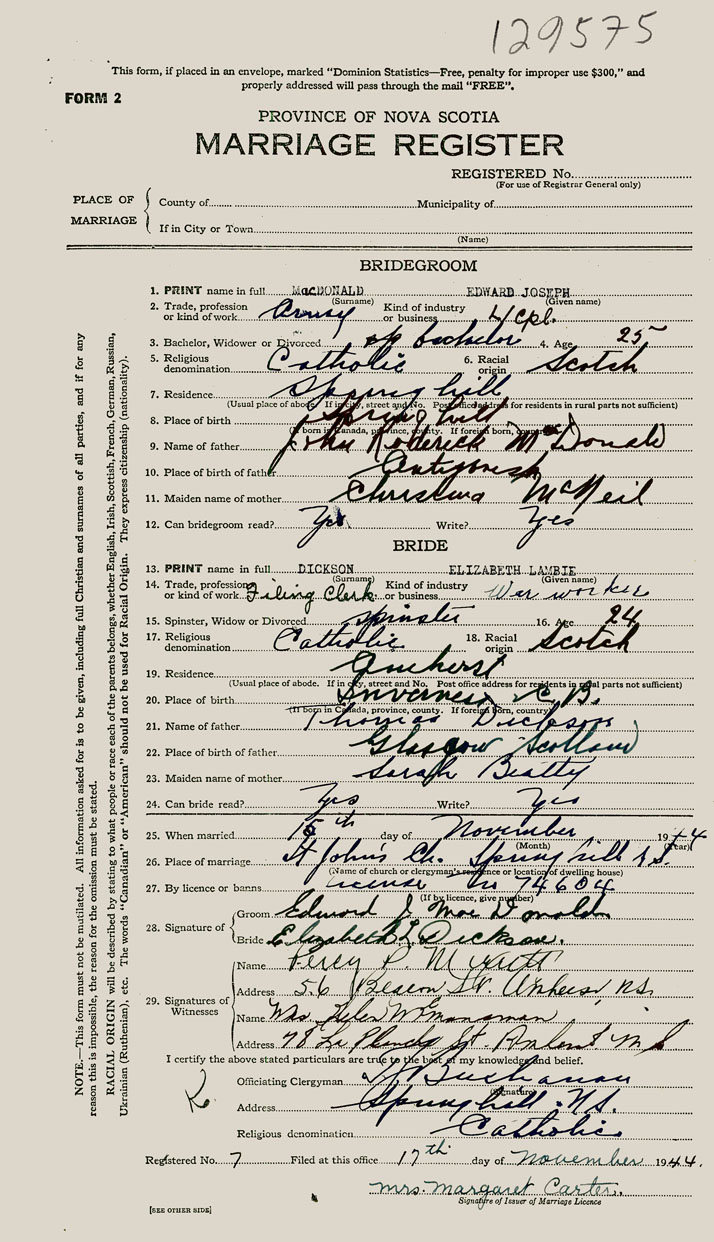 129575
This form, if placed in an envelope, marked "Dominion Statistics—Free, penalty for improper use $300," and
properly addressed will pass through the mail "FREE".
FORM 2
PROVINCE OF NOVA SCOTIA
MARRIAGE REGISTER
REGISTERED No.
(For use of Registrar General only)
PLACE OF MARRIAGE
County of Municipality of
If in City or Town
(Name)
BRIDEGROOM
1. PRINT name in full MacDONALD EDWARD JOSEPH
(Surname) (Given name)
2. Trade, profession or kind of work Army Kind of industry or business L/Cpl.
3. Bachelor, Widower or Divorced Bachelor 4. Age 25
5. Religious denomination Catholic 6. Racial origin Scotch
7. Residence Springhill
(Usual place of abode. If in city, street and No. Post office address for residents in rural parts not sufficient)
8. Place of birth Springhill
(If born in Canada, province, county. If foreign born, country)
9. Name of father John Roderick McDonald
10. Place of birth of father Antigonish
11. Maiden name of mother Christina McNeil
12. Can bridegroom read? Yes Write? Yes
BRIDE
13. PRINT name in full DICKSON ELIZABETH LAMBIE
(Surname) (Given name)
14. Trade, profession or kind of work Filing Clerk Kind of industry or business War worker
15. Spinster, Widow or Divorced Spinster 16. Age 24
17. Religious denomination Catholic 18. Racial origin Scotch
19. Residence Amherst
(Usual place of abode. If in city, street and No. Post office address for residents in rural parts not sufficient)
20. Place of birth Inverness C.B.
(If born in Canada, province, county. If foreign born, country)
21. Name of father Thomas Dickson
22. Place of birth of father Glasgow Scotland
23. Maiden name of mother Sarah Beatty
24. Can bride read? Yes Write? Yes
25. When married 15th day of November 1944
(Month) (Year)
26. Place of marriage St John's Ch. Springhill N.S.
(Name of church or clergyman's residence or location of dwelling house)
27. By licence or banns License No 74604
(If by licence, give number)
28. Signature of
Groom Edward J. MacDonald
Bride Elizabeth L. Dickson.
29. Signatures of Witnesses
Name Percy P.
Address 56 Beacon St. Amherst, N.S.
Name Mrs. Helen
Address 78 La Planche St. Amherst N S
I certify the above stated particulars are true to the best of my knowledge and belief.
Officiating Clergyman Buchanan
(Signature)
Address Springhill N.S.
Religious denomination Catholic
Registered No. 7 Filed at this office 17th day of November 1944.
Mrs. Margaret Carter.
Signature of Issuer of Marriage Licence
[SEE OTHER SIDE]
NOTE.—This form must not be mutilated. All information asked for is to be given, including full Christian and surnames of all parties, and if for any
reason this is impossible, the reason for the omission must be stated.
RACIAL ORIGIN will be described by stating to what people or race each of the parents belongs, whether English, Irish, Scottish, French, German, Russian,
Ukrainian (Ruthenian), etc. The words "Canadian" or "American" should not be used for Racial Origin. They express citizenship (nationality).